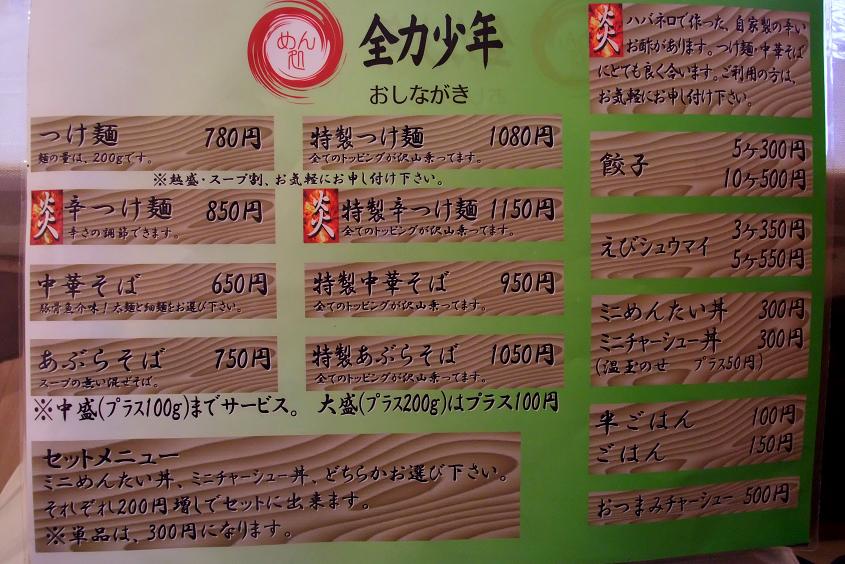 めん処
全力少年
おしながき
つけ麺 780円
麺の量は、200gです。
特製つけ麺 1080円
全てのトッピングが沢山乗ってます。
※熱盛・スープ割、お気軽にお申し付け下さい。
炎 辛つけ麺 850円
辛さの調節できます。
炎 特製辛つけ麺 1150円
全てのトッピングが沢山乗ってます。
中華そば 650円
豚骨魚介味！太麺と細麺をお選び下さい。
特製中華そば 950円
全てのトッピングが沢山乗ってます。
あぶらそば 750円
スープの無い混ぜそば。
特製あぶらそば 1050円
全てのトッピングが沢山乗ってます。
※中盛(プラス100g)までサービス。 大盛(プラス200g)はプラス100円
セットメニュー
ミニめんたい丼、ミニチャーシュー丼、どちらかお選び下さい。
それぞれ200円増しでセットに出来ます。
※単品は、300円になります。
炎 ハバネロで作った、自家製の辛い
お酢があります。つけ麺・中華そば
にとても良く合います。ご利用の方は、
お気軽にお申し付け下さい。
餃子 5ケ300円
10ケ500円
えびシュウマイ 3ケ350円
5ケ550円
ミニめんたい丼 300円
ミニチャーシュー丼 300円
(温玉のせ プラス50円)
半ごはん 100円
ごはん 150円
おつまみチャーシュー 500円